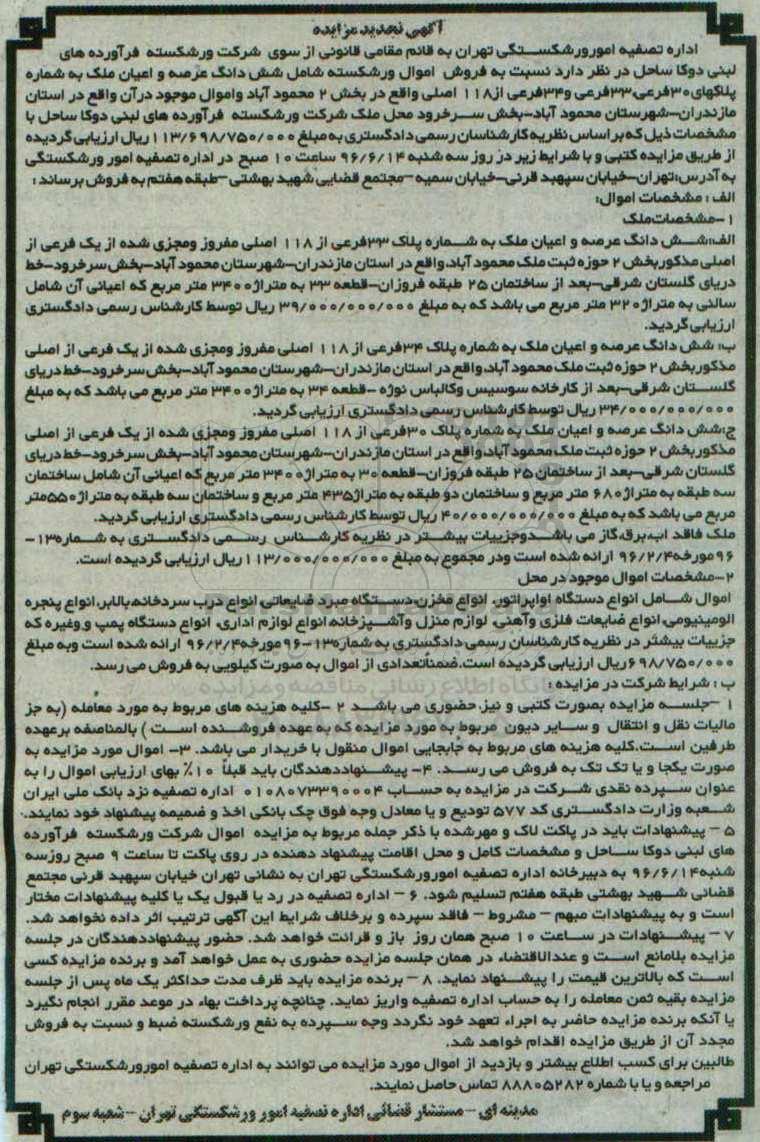 آگهی تجدید مزایده
اداره تصفیه امورورشکستگی تهران به قائم مقامی قانونی از سوی شرکت ورشکسته فرآورده های
لبنی دوکا ساحل در نظر دارد نسبت به فروش اموال ورشکسته شامل شش دانگ عرصه و اعیان ملک به شماره
پلاکهای ۳۰فرعی،۳۳فرعی و۳۴فرعی از۱۱۸ اصلی واقع در بخش ۲ محمود آباد واموال موجود درآن واقع در استان
مازندران-شهرستان محمود آباد-بخش سرخرود محل ملک شرکت ورشکسته فرآورده های لبنی دوکا ساحل با
مشخصات ذیل که براساس نظریه کارشناسان رسمی دادگستری به مبلغ ۱۱۳/۶۹۸/۷۵۰/۰۰۰ ریال ارزیابی گردیده
از طریق مزایده کتبی و با شرایط زیر در روز سه شنبه ۹۶/۶/۱۴ ساعت ۱۰ صبح در اداره تصفیه امور ورشکستگی
به آدرس:تهران-خیابان سپهبد قرنی-خیابان سمیه -مجتمع قضایی شهید بهشتی -طبقه هفتم به فروش برساند :
الف : مشخصات اموال:
۱-مشخصات ملک
الف:شش دانگ عرصه و اعیان ملک به شماره پلاک ۳۳فرعی از ۱۱۸ اصلی مفروز ومجزی شده از یک فرعی از
اصلی مذکوربخش ۲ حوزه ثبت ملک محمود آباد،واقع در استان مازندران-شهرستان محمود آباد-بخش سرخرود-خط
دریای گلستان شرقی-بعد از ساختمان ۲۵ طبقه فروزان-قطعه ۳۳ به متراژ۳۴۰۰ متر مربع که اعیانی آن شامل
سالنی به متراژ۳۲۰ متر مربع می باشد که به مبلغ ۳۹/۰۰۰/۰۰۰/۰۰۰ ریال توسط کارشناس رسمی دادگستری
ارزیابی گردید.
ب: شش دانگ عرصه و اعیان ملک به شماره پلاک ۳۴فرعی از ۱۱۸ اصلی مفروز ومجزی شده از یک فرعی از اصلی
مذکوربخش ۲ حوزه ثبت ملک محمود آباد،واقع در استان مازندران-شهرستان محمود آباد-بخش سرخرود-خط دریای
گلستان شرقی-بعد از کارخانه سوسیس وکالباس نوژه -قطعه ۳۴ به متراژ۳۴۰۰ متر مربع می باشد که به مبلغ
۳۴/۰۰۰/۰۰۰/۰۰۰ ریال توسط کارشناس رسمی دادگستری ارزیابی گردید.
ج:شش دانگ عرصه و اعیان ملک به شماره پلاک ۳۰فرعی از ۱۱۸ اصلی مفروز ومجزی شده از یک فرعی از اصلی
مذکوربخش ۲ حوزه ثبت ملک محمود آباد،واقع در استان مازندران-شهرستان محمود آباد-بخش سرخرود-خط دریای
گلستان شرقی-بعد از ساختمان ۲۵ طبقه فروزان-قطعه ۳۰ به متراژ۳۴۰۰ متر مربع که اعیانی آن شامل ساختمان
سه طبقه به متراژ۶۸۰ متر مربع و ساختمان دو طبقه به متراژ۴۳۵ متر مربع و ساختمان سه طبقه به متراژ۵۵۰متر
مربع می باشد که به مبلغ ۴۰/۰۰۰/۰۰۰/۰۰۰ ریال توسط کارشناس رسمی دادگستری ارزیابی گردید.
ملک فاقد آب،برق،گاز می باشدوجزییات بیشتر در نظریه کارشناس رسمی دادگستری به شماره۱۳-
۹۶ مورخه۹۶/۲/۴ ارائه شده است ودر مجموع به مبلغ ۱۱۳/۰۰۰/۰۰۰/۰۰۰ ریال ارزیابی گردیده است.
۲-مشخصات اموال موجود در محل
اموال شامل انواع دستگاه اواپراتور، انواع مخزن،دستگاه مبرد ضایعاتی،انواع درب سردخانه،بالابر،انواع پنجره
الومینیومی،انواع ضایعات فلزی وآهنی، لوازم منزل وآشپزخانه،انواع لوازم اداری، انواع دستگاه پمپ و وغیره که
جزییات بیشتر در نظریه کارشناسان رسمی دادگستری به شماره۱۳-۹۶مورخه۹۶/۲/۴ ارائه شده است وبه مبلغ
۶۹۸/۷۵۰/۰۰۰ریال ارزیابی گردیده است.ضمناًتعدادی از اموال به صورت کیلویی به فروش می رسد.
ب : شرایط شرکت در مزایده :
۱ -جلسه مزایده بصورت کتبی و نیز، حضوری می باشد ۲ -کلیه هزینه های مربوط به مورد معامله (به جز
مالیات نقل و انتقال و سایر دیون مربوط به مورد مزایده که به عهده فروشنده است ) بالمناصفه برعهده
طرفین است.کلیه هزینه های مربوط به جابجایی اموال منقول با خریدار می باشد. ۳- اموال مورد مزایده به
صورت یکجا و یا تک تک به فروش می رسد. ۴- پیشنهاددهندگان باید قبلاً ۱۰٪ بهای ارزیابی اموال را به
عنوان سپرده نقدی شرکت در مزایده به حساب ۰۱۰۸۰۷۳۳۹۰۰۰۴ اداره تصفیه نزد بانک ملی ایران
شعبه وزارت دادگستری کد ۵۷۷ تودیع و یا معادل وجه فوق چک بانکی اخذ و ضمیمه پیشنهاد خود نمایند.
۵ - پیشنهادات باید در پاکت لاک و مهرشده با ذکر جمله مربوط به مزایده اموال شرکت ورشکسته فرآورده
های لبنی دوکا ساحل و مشخصات کامل و محل اقامت پیشنهاد دهنده در روی پاکت تا ساعت ۹ صبح روزسه
شنبه۹۶/۶/۱۴ به دبیرخانه اداره تصفیه امورورشکستگی تهران به نشانی تهران خیابان سپهبد قرنی مجتمع
قضائی شهید بهشتی طبقه هفتم تسلیم شود. ۶ - اداره تصفیه در رد یا قبول یک یا کلیه پیشنهادات مختار
است و به پیشنهادات مبهم - مشروط - فاقد سپرده و برخلاف شرایط این آگهی ترتیب اثر داده نخواهد شد.
۷ - پیشنهادات در ساعت ۱۰ صبح همان روز باز و قرائت خواهد شد. حضور پیشنهاددهندگان در جلسه
مزایده بلامانع است و عندالاقتضاء در همان جلسه مزایده حضوری به عمل خواهد آمد و برنده مزایده کسی
است که بالاترین قیمت را پیشنهاد نماید. ۸ - برنده مزایده باید ظرف مدت حداکثر یک ماه پس از جلسه
مزایده بقیه ثمن معامله را به حساب اداره تصفیه واریز نماید. چنانچه پرداخت بهاء در موعد مقرر انجام نگیرد
یا آنکه برنده مزایده حاضر به اجراء تعهد خود نگردد وجه سپرده به نفع ورشکسته ضبط و نسبت به فروش
مجدد آن از طریق مزایده اقدام خواهد شد.
طالبین برای کسب اطلاع بیشتر و بازدید از اموال مورد مزایده می توانند به اداره تصفیه امورورشکستگی تهران
مراجعه و یا با شماره ۸۸۸۰۵۲۸۲ تماس حاصل نمایند.
مدینه ای - مستشار قضائی اداره تصفیه امور ورشکستگی تهران - شعبه سوم